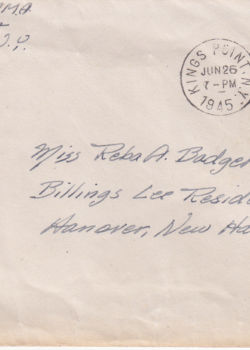 M.A.
N.Y.
KINGS POINT, N.Y.
JUN 26
7-PM
1945
Miss Reba A. Badger
Billings Lee Resid
Hanover, New Ha